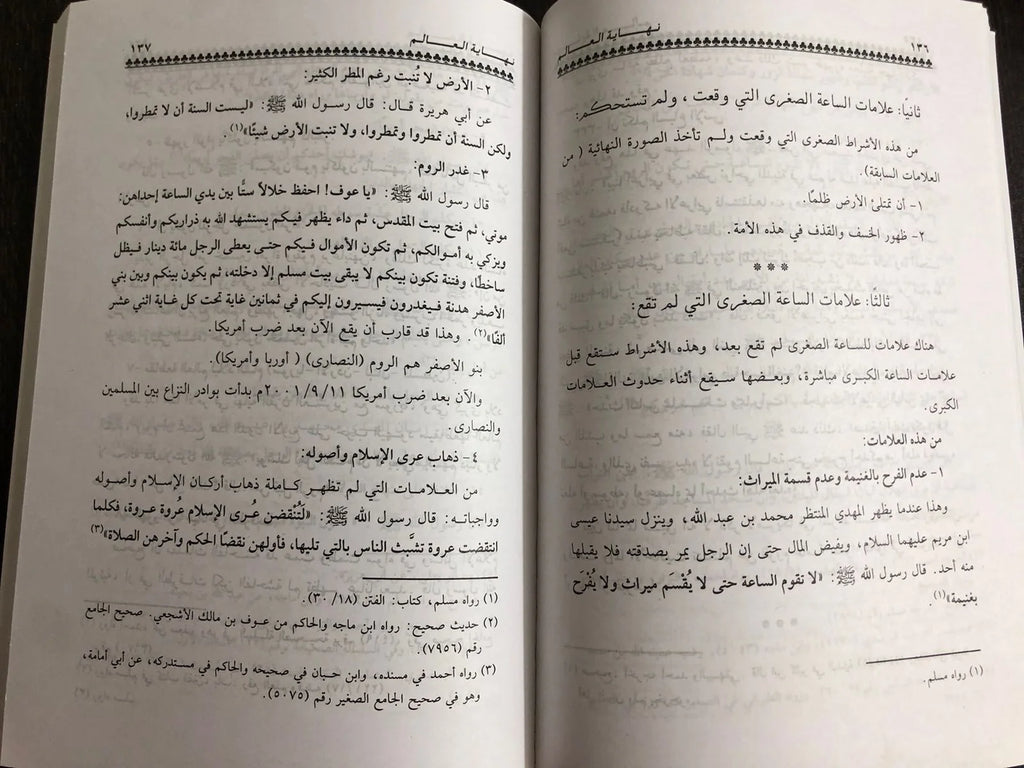 ١٣٦
نهاية العالم
ثانيًا: علامات الساعة الصغرى التي وقعت ، ولم تستحكم:
من هذه الأشراط الصغرى التي وقعت ولم تأخذ الصورة النهائية ( من
العلامات السابقة).
١- أن تمتلئ الأرض ظلمًا.
٢- ظهور الخسف والقذف في هذه الأمة .
* * *
ثالثًا: علامات الساعة الصغرى التي لم تقع:
هناك علامات للساعة الصغرى لم تقع بعد، وهذه الأشراط ستقع قبل
علامات الساعة الكبرى مباشرة، وبعضها سيقع أثناء حدوث العلامات
الكبرى.
من هذه العلامات:
١- عدم الفرح بالغنيمة وعدم قسمة الميراث:
وهذا عندما يظهر المهدي المنتظر محمد بن عبد الله، وينزل سيدنا عيسى
ابن مريم عليهما السلام، ويفيض المال حتى إن الرجل يمر بصدقته فلا يقبلها
منه أحد. قال رسول الله ﷺ: «لا تقوم الساعة حتى لا يُقْسَم ميراث ولا يُفْرَح
بغنيمة»(١).
(١) رواه مسلم.
نهاية العالم
١٣٧
٢- الأرض لا تُنبت رغم المطر الكثير:
عن أبي هريرة قال: قال رسول الله ﷺ: «ليست السنة أن لا تمطروا،
ولكن السنة أن تمطروا وتمطروا، ولا تنبت الأرض شيئًا»(١).
٣- غدر الروم:
قال رسول الله ﷺ: «يا عوف! احفظ خلالاً ستًّا بين يدي الساعة إحداهن:
موتي، ثم فتح بيت المقدس، ثم داء يظهر فيكم يستشهد الله به ذراريكم وأنفسكم
ويزكي به أموالكم، ثم تكون الأموال فيكم حتى يعطى الرجل مائة دينار فيظل
ساخطًا، وفتنة تكون بينكم لا يبقى بيت مسلم إلا دخلته، ثم يكون بينكم وبين بني
الأصفر هدنة فيغدرون فيسيرون إليكم في ثمانين غاية تحت كل غاية اثني عشر
ألفًا»(٢). وهذا قد قارب أن يقع الآن بعد ضرب أمريكا.
بنو الأصفر هم الروم (النصارى) ( أوربا وأمريكا).
والآن بعد ضرب أمريكا ٢٠٠١/٩/١١م بدأت بوادر النزاع بين المسلمين
والنصارى.
٤- ذهاب عرى الإسلام وأصوله:
من العلامات التي لم تظهر كاملة ذهاب أركان الإسلام وأصوله
وواجباته: قال رسول الله ﷺ: «لَتُنْقضن عُرى الإسلام عُروة عروة، فكلما
انتقضت عروة تشبَّث الناس بالتي تليها، فأولهن نقضًا الحكم وآخرهن الصلاة»(٣)
(١) رواه مسلم، كتاب: الفتن (٣٠/١٨).
(٢) حديث صحيح: رواه ابن ماجه والحاكم من عوف بن مالك الأشجعي. صحيح الجامع
رقم (٧٩٥٦).
(٣) رواه أحمد في مسنده، وابن حبان في صحيحه والحاكم في مستدركه، عن أبي أمامة،
وهو في صحيح الجامع الصغير رقم (٥٠٧٥).